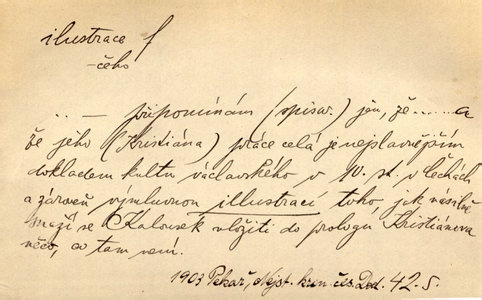 ilustrace f
-čeho
.. — připomínám (spisov.) jen, že ...... a
že jeho (Kristiána) práce celá je nejslavnějším
dokladem kultu václavského v 10. st. v Čechách
a zároveň výmluvnou illustrací toho, jak násilně
snaží se Kalousek vložiti do prologu Kristiánova
něco, co tam není.
1903 Pekař, Nejst. kron. čes. Ded. 42. s.